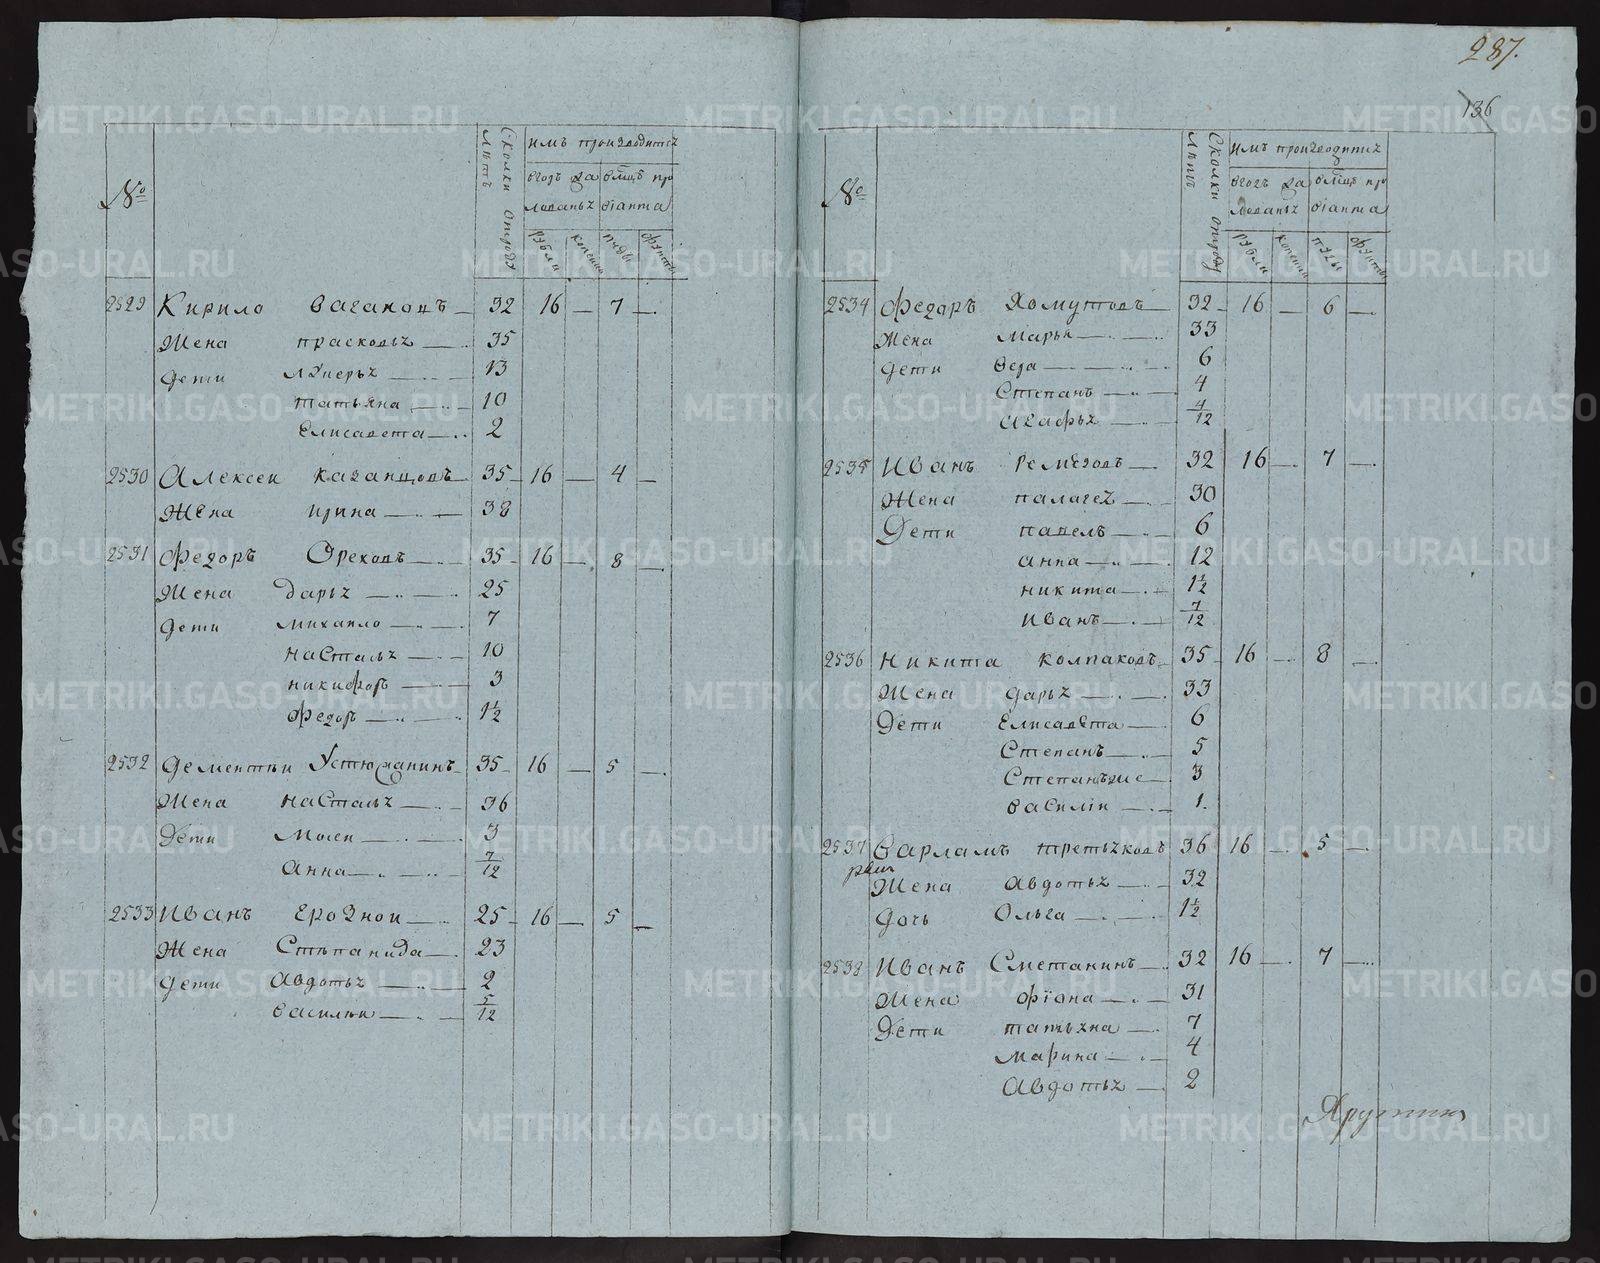 287.
136
№
Сколки отроду лѣтъ
имъ производитса
вгодъ жа лованьѣ
вмѣсецъ про віанта
рубли
копеики
пуды
фунты
2529 Кирило Вагановъ 32 16 — 7 —
Жена прасковьѣ 35
дети Лукерьѣ 13
татьяна 10
Елисавета 2
2530 Алексеи казанцовъ 35 16 — 4 —
Жена ирина 38
2531 Федоръ Ореховъ 35 16 — 8 —
Жена дарьѣ 25
дети михаило 7
настасьѣ 10
никифоръ 3
федоръ 1½
2532 дементеи Устюжанинъ 35 16 — 5 —
Жена настасьѣ 36
Дети Мосеи 3
анна 7/12
2533 Иванъ 25 16 — 5 —
Жена Степанида 23
дети авдотьѣ 2
василеи 5/12
№
Сколки отроду лѣтъ
имъ производитца
вгодъ жа лованьѣ
вмѣсецъ про віанта
рубли
копеики
пуды
фунты
2534 Федоръ Хомутовъ 32 16 — 6 —
Жена марья 33
дети вера 6
Степанъ 4
агафьѣ 4/12
2535 Иванъ ремезовъ 32 16 — 7 —
Жена палагеѣ 30
Дети павелъ 6
анна 12
никита 1½
иванъ 7/12
2536 Никита колпаковъ 35 16 — 8 —
Жена дарьѣ 33
Дети Елисавета 6
Степанъ 5
Степанъже 3
василіи 1.
2537 Варламъ третьѣковъ 36 16 — 5 —
Жена авдотьѣ 32
дочь Ольга 1½
2538 Иванъ Сметанинъ 32 16 — 7 —
Жена фіона 31
Дети татьѣна 7
марина 4
авдотьѣ 2
METRIKI.GASO-URAL.RU